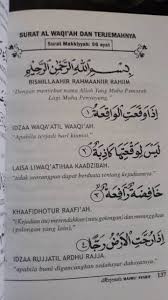 SURAT AL WAQI'AH DAN TERJEMAHNYA
Surat Makkiyyah: 96 ayat
بِسْمِ اللَّهِ الرَّحْمَٰنِ الرَّحِيْمِ
BISMILLAAHIR RAHMAANIR RAHIIM
"Dengan menyebut nama Allah Yang Maha Pemurah
Lagi Maha Penyayang."
إِذَا وَقَعَتِ الْوَاقِعَةُ ۝١
IDZAA WAQA'ATIL WAAQI'AH.
"Apabila terjadi hari kiamat,
لَيْسَ لِوَقْعَتِهَا كَاذِبَةٌ ۝٢
LAISA LIWAQ'ATIHAA KAADZIBAH.
tidak seorangpun dapat berdusta tentang kejadiannya.
خَافِضَةٌ رَّافِعَةٌ ۝٣
KHAAFIDHOTUR RAAFI'AH.
(Kejadian itu) merendahkan (suatu golongan) dan meninggikan
(golongan yang lain)
إِذَا رُجَّتِ الْأَرْضُ رَجًّا ۝٤
IDZAA RUJJATIL ARDHU RAJJA.
apabila bumi digoncangkan sedahsyat-dahsyatnya,
137